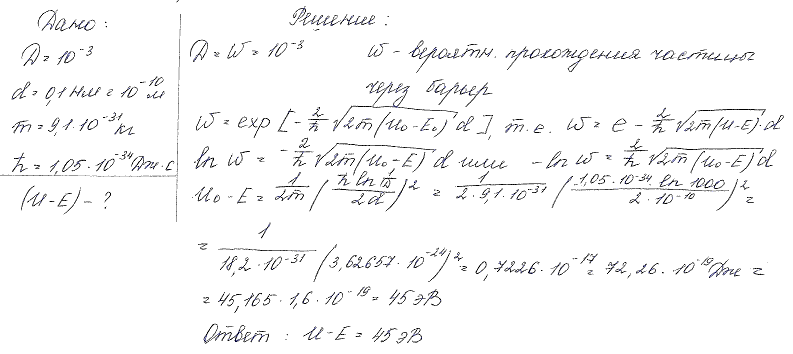 Дано:
D = 10^-3
d = 0,1 нм = 10^-10 м
m = 9,1·10^-31 кг
ħ = 1,05·10^-34 Дж·с
(U-E) - ?
Решение:
D = W = 10^-3 W - вероятн. прохождения частицы
через барьер
W = exp [-2/ħ √2m(U₀-E₀) d], т.е. W = e - 2/ħ √2m(U-E)·d
ln W = -2/ħ √2m(U₀-E) d или -ln W = 2/ħ √2m(U₀-E) d
U₀-E = 1/2m (ħ ln 1/D / 2d)² = 1/2·9,1·10^-31 (1,05·10^-34 · ln 1000 / 2·10^-10)² =
= 1/18,2·10^-31 (3,62657·10^-24)² = 0,7226·10^-17 = 72,26·10^-19 Дж =
= 45,165·1,6·10^-19 = 45 эВ
Ответ: U-E = 45 эВ